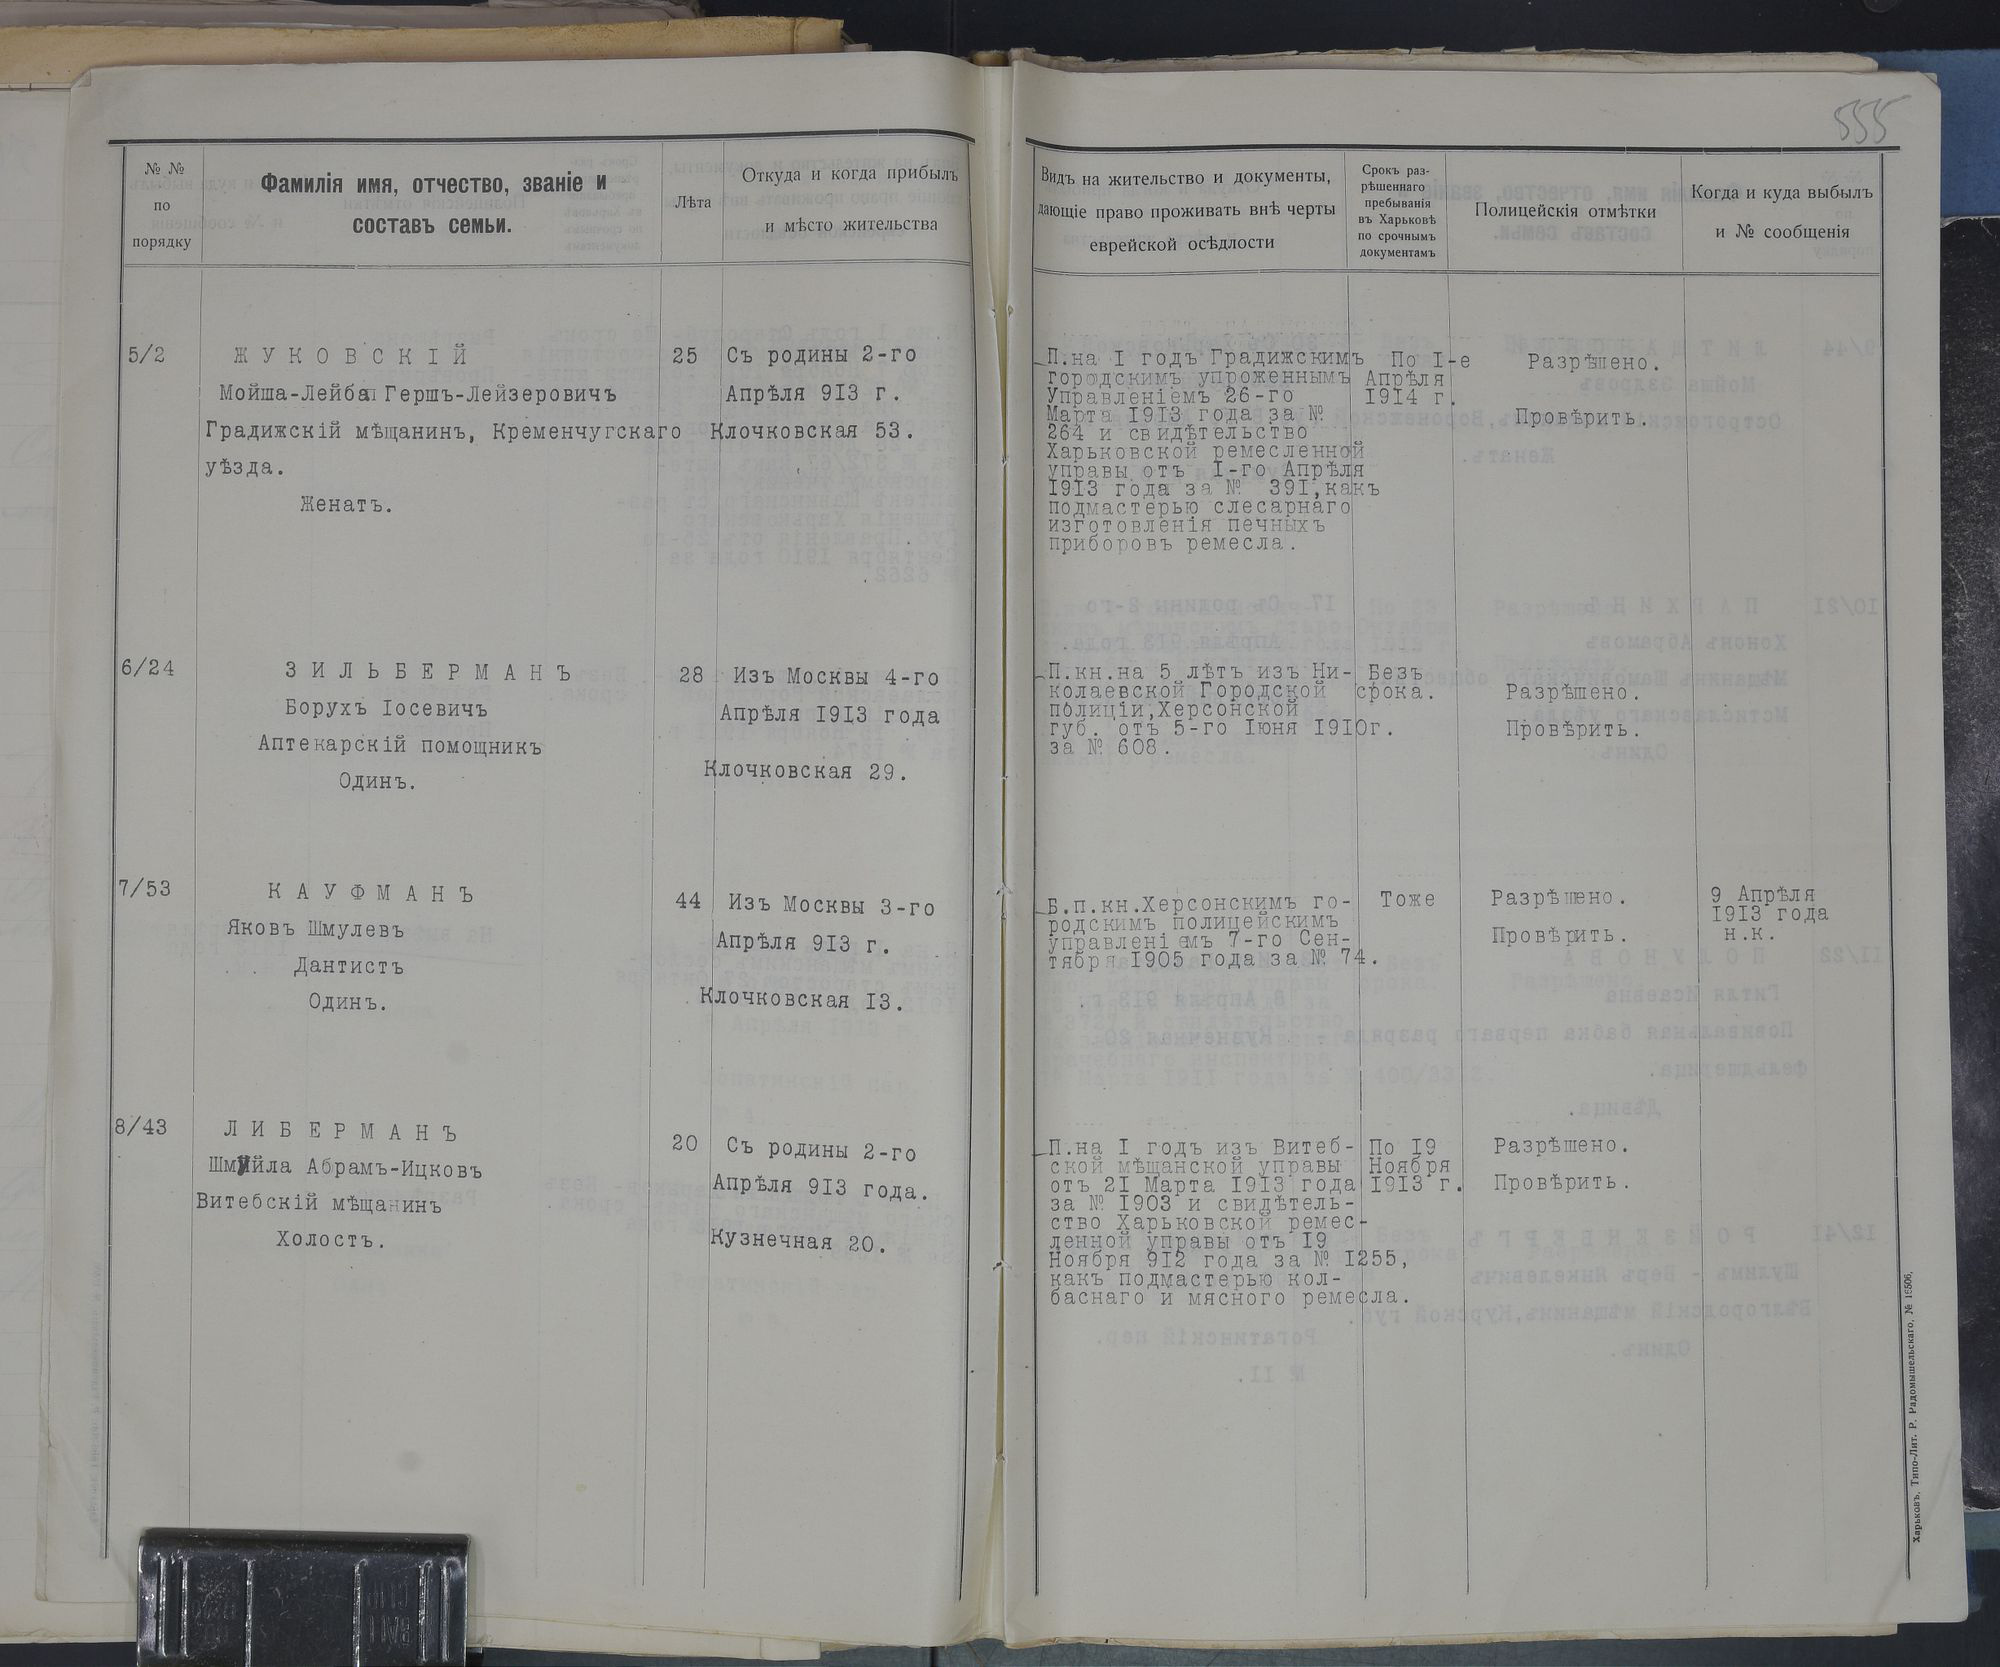 555
№ №
по
порядку
Фамилія имя, отчество, званіе и
составъ семьи.
Лѣта
Откуда и когда прибылъ
и мѣсто жительства
Видъ на жительство и документы,
дающіе право проживать внѣ черты
еврейской осѣдлости
Срокъ раз-
рѣшеннаго
пребыванія
въ Харьковѣ
по срочнымъ
документамъ
Полицейскія отмѣтки
Когда и куда выбылъ
и № сообщенія
5/2
ЖУКОВСКІЙ
Мойша-Лейба Гершъ-Лейзеровичъ
Градижскій мѣщанинъ, Кременчугскаго
уѣзда.
Женатъ.
25
Съ родины 2-го
Апрѣля 913 г.
Клочковская 53.
П.на I годъ Градижскимъ
городскимъ упроженнымъ
Управленіемъ 26-го
Марта 1913 года за №
264 и свидѣтельство
Харьковской ремесленной
управы отъ I-го Апрѣля
1913 года за № 391,какъ
подмастерью слесарнаго
изготовленія печныхъ
приборовъ ремесла.
По I-е
Апрѣля
1914 г.
Разрѣшено.
Провѣрить.
6/24
ЗИЛЬБЕРМАНЪ
Борухъ Іосевичъ
Аптекарскій помощникъ
Одинъ.
28
Изъ Москвы 4-го
Апрѣля 1913 года
Клочковская 29.
П.кн.на 5 лѣтъ изъ Ни-
колаевской Городской
полиціи,Херсонской
губ. отъ 5-го Іюня 1910г.
за № 608.
Безъ
срока.
Разрѣшено.
Провѣрить.
7/53
КАУФМАНЪ
Яковъ Шмулевъ
Дантистъ
Одинъ.
44
Изъ Москвы 3-го
Апрѣля 913 г.
Клочковская I3.
Б.п.кн.Херсонскимъ го-
родскимъ полицейскимъ
управленіемъ 7-го Сен-
тября 1905 года за № 74.
Тоже
Разрѣшено.
Провѣрить.
9 Апрѣля
1913 года
н.к.
8/43
ЛИБЕРМАНЪ
Шмуйла Абрамъ-Ицковъ
Витебскій мѣщанинъ
Холостъ.
20
Съ родины 2-го
Апрѣля 913 года.
Кузнечная 20.
П.на I годъ изъ Витеб-
ской мѣщанской управы
отъ 21 Марта 1913 года
за № 1903 и свидѣтель-
ство Харьковской ремес-
ленной управы отъ I9
Ноября 912 года за № I255,
какъ подмастерью кол-
баснаго и мясного ремесла.
По I9
Ноября
1913 г.
Разрѣшено.
Провѣрить.
Харьковъ, Типо-Лит. Р. Радомышельскаго, № 16506.